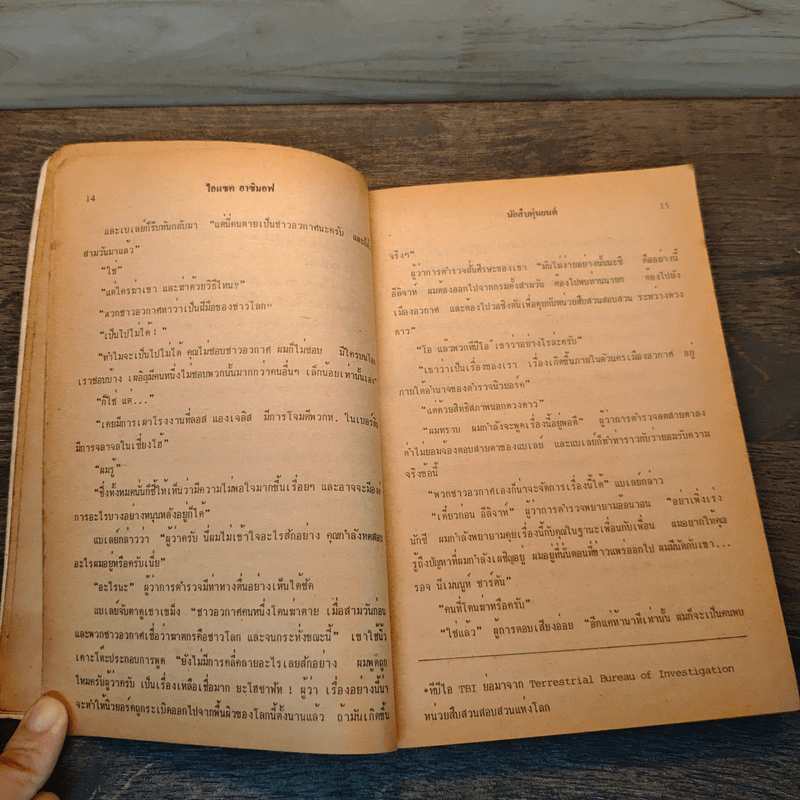 14
ไอแซค อาซิมอฟ
และเบเลย์ก็รีบหันกลับมา "แต่นี่คนตายเป็นชาวอวกาศนะครับ และก็
สามวันมาแล้ว"
"ใช่"
"แต่ใครฆ่าเขา และฆ่าด้วยวิธีไหน?"
"พวกชาวอวกาศหาว่าเป็นฝีมือของชาวโลก"
"เป็นไปไม่ได้!"
"ทำไมจะเป็นไปไม่ได้ คุณไม่ชอบชาวอวกาศ ผมก็ไม่ชอบ มีใครบนโลก
เราชอบบ้าง เผอิญมีคนหนึ่งไม่ชอบพวกนั้นมากกว่าคนอื่นๆ เล็กน้อยเท่านั้นเอง"
"ก็ใช่ แต่..."
"เคยมีการเผาโรงงานที่ลอส แองเจลิส มีการโจมตีพวกห. ในเบอร์ลิน
มีการจลาจลในเซี่ยงไฮ้"
"ผมรู้"
"ซึ่งทั้งหมดนั่นก็ชี้ให้เห็นว่ามีความไม่พอใจมากขึ้นเรื่อยๆ และอาจจะมีองค์
การอะไรบางอย่างหนุนหลังอยู่ก็ได้"
เบเลย์กล่าวว่า "ผู้ว่าครับ นี่ผมไม่เข้าใจอะไรสักอย่าง คุณกำลังทดสอบ
อะไรผมอยู่หรือครับเนี่ย"
"อะไรนะ" ผู้ว่าการตำรวจมีท่าทางตื่นอย่างเห็นได้ชัด
เบเลย์จับตาดูเขาเขม็ง "ชาวอวกาศคนหนึ่งโดนฆ่าตาย เมื่อสามวันก่อน
และพวกชาวอวกาศเชื่อว่าฆาตกรคือชาวโลก และจนกระทั่งขณะนี้" เขาใช้นิ้ว
เคาะโต๊ะประกอบการพูด "ยังไม่มีการคลี่คลายอะไรเลยสักอย่าง ผมพูดถูก
ไหมครับผู้ว่าครับ เป็นเรื่องเหลือเชื่อมาก ยะโฮซาฟัท ! ผู้ว่า เรื่องอย่างนี้น่า
จะทำให้นิวยอร์คถูกระเบิดออกไปจากพื้นผิวของโลกนี้ตั้งนานแล้ว ถ้ามันเกิดขึ้น
นักสืบหุ่นยนต์
15
จริงๆ"
ผู้ว่าการตำรวจสั่นศีรษะของเขา "มันไม่ง่ายอย่างนั้นนะซี คืออย่างนี้
อีลิจาห์ ผมต้องออกไปจากกรมตั้งสามวัน ต้องไปพบท่านนายก ต้องไปยัง
เมืองอวกาศ และต้องไปวอชิงตันเพื่อคุยกับหน่วยสืบสวนสอบสวน ระหว่างดวง
ดาว"
"โอ แล้วพวกทีบีไอ* เขาว่าอย่างไรล่ะครับ"
"เขาว่าเป็นเรื่องของเรา เรื่องเกิดขึ้นภายในตัวนครเมืองอวกาศ อยู่
ภายใต้อำนาจของตำรวจนิวยอร์ค"
"แต่ด้วยสิทธิสภาพนอกดวงดาว"
"ผมทราบ ผมกำลังจะพูดเรื่องนี้อยู่พอดี" ผู้ว่าการตำรวจลดสายตาลง
ต่ำไม่ยอมจ้องตอบสายตาของเบเลย์ และเบเลย์ก็ทำท่าราวกับว่ายอมรับความ
จริงข้อนี้
"พวกชาวอวกาศเองก็น่าจะจัดการเรื่องนี้ได้" เบเลย์กล่าว
"เดี๋ยวก่อน อีลิจาห์" ผู้ว่าการตำรวจพยายามอ้อนวอน "อย่าเพิ่งเร่ง
นักซี ผมกำลังพยายามคุยเรื่องนี้กับคุณในฐานะเพื่อนกับเพื่อน ผมอยากให้คุณ
รู้ถึงปัญหาที่ผมกำลังเผชิญอยู่ ผมอยู่ที่นั่นตอนที่ข่าวแพร่ออกไป ผมมีนัดกับเขา...
รอจ นีเมนนูห์ ซาร์ตัน"
"คนที่โดนฆ่าหรือครับ"
"ใช่แล้ว" ผู้การตอบเสียงอ่อย "อีกแค่ห้านาทีเท่านั้น ผมก็จะเป็นคนพบ
*ทีบีไอ TBI ย่อมาจาก Terrestrial Bureau of Investigation
หน่วยสืบสวนสอบสวนแห่งโลก